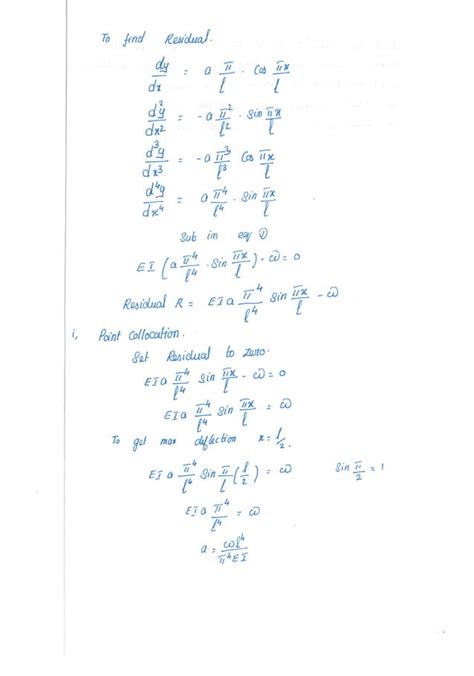 To find Residual.
dy/dx = a π/l · Cos πx/l
d²y/dx² = -a π²/l² · Sin πx/l
d³y/dx³ = -a π³/l³ Cos πx/l
d⁴y/dx⁴ = a π⁴/l⁴ · Sin πx/l
Sub in eq ①
EI (a π⁴/l⁴ · Sin πx/l) - ω = 0
Residual R = EIa π⁴/l⁴ Sin πx/l - ω
i, Point Collocation.
Set Residual to zero.
EIa π⁴/l⁴ Sin πx/l - ω = 0
EIa π⁴/l⁴ Sin πx/l = ω
To get max deflection x = l/2.
EIa π⁴/l⁴ Sin π/l (l/2) = ω Sin π/2 = 1
EIa π⁴/l⁴ = ω
a = ωl⁴/π⁴EI